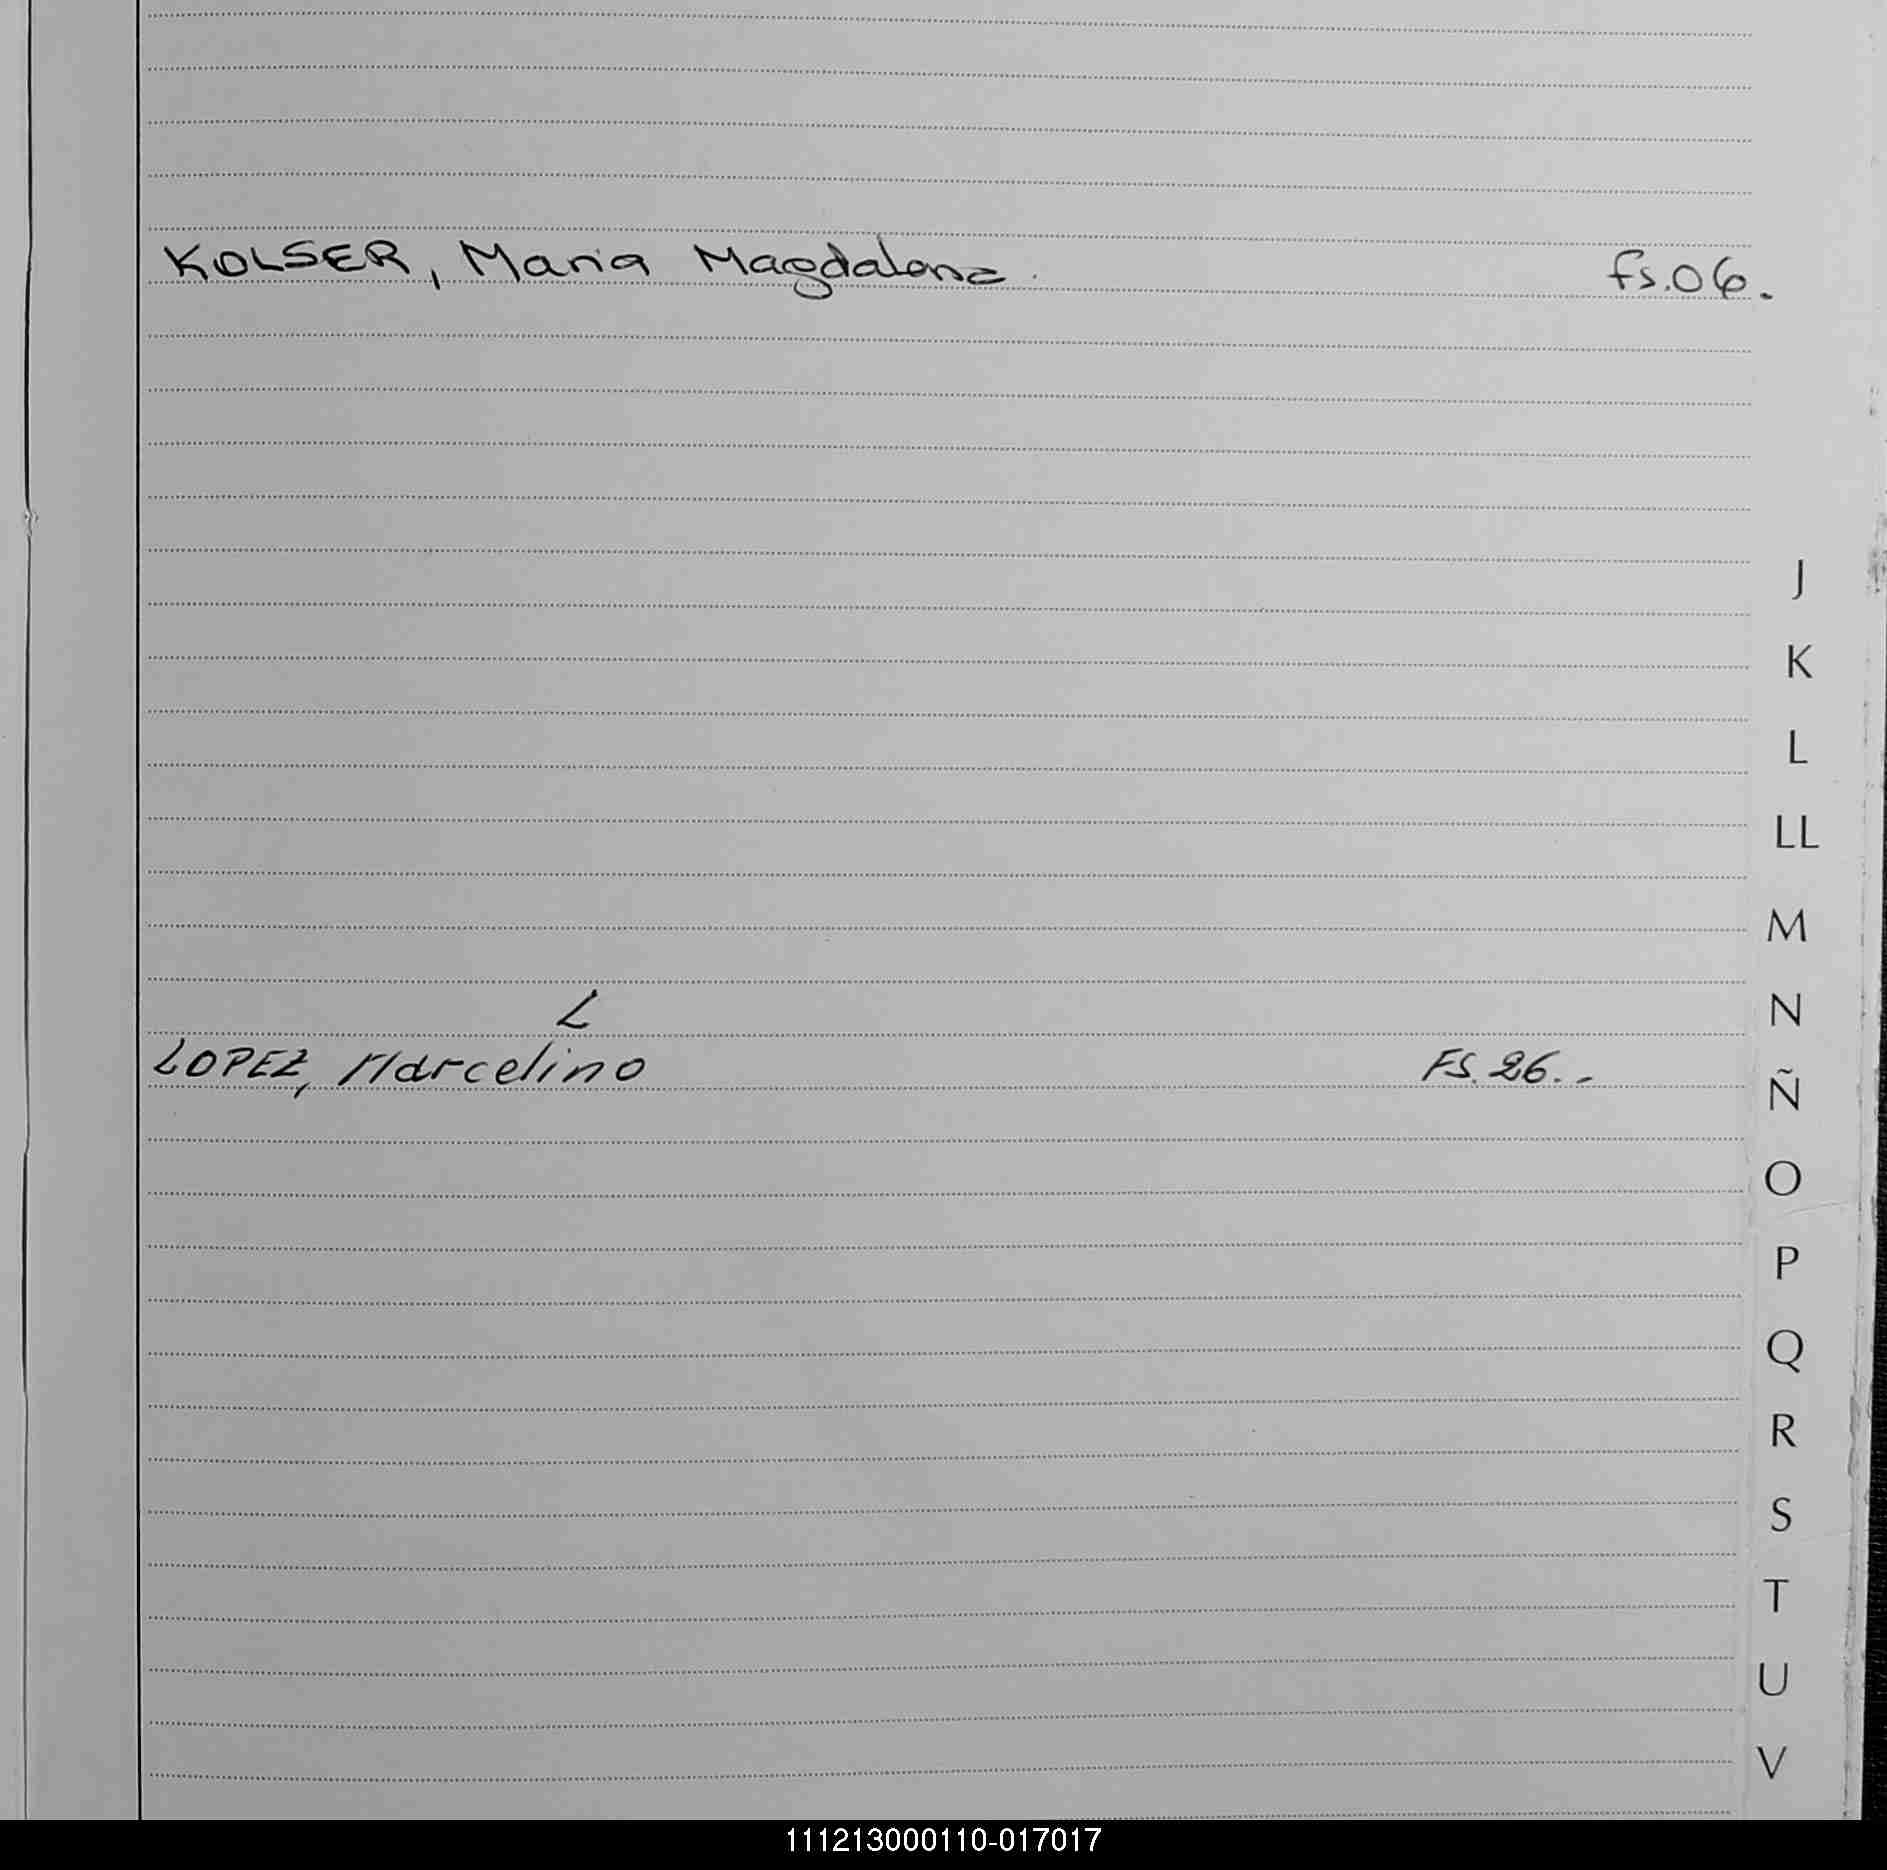 KOLSER, Maria Magdalena.
fs.06.
J
K
L
LL
M
N
L
LOPEZ, Marcelino
FS. 26..-
Ñ
O
P
Q
R
S
T
U
V
111213000110-017017